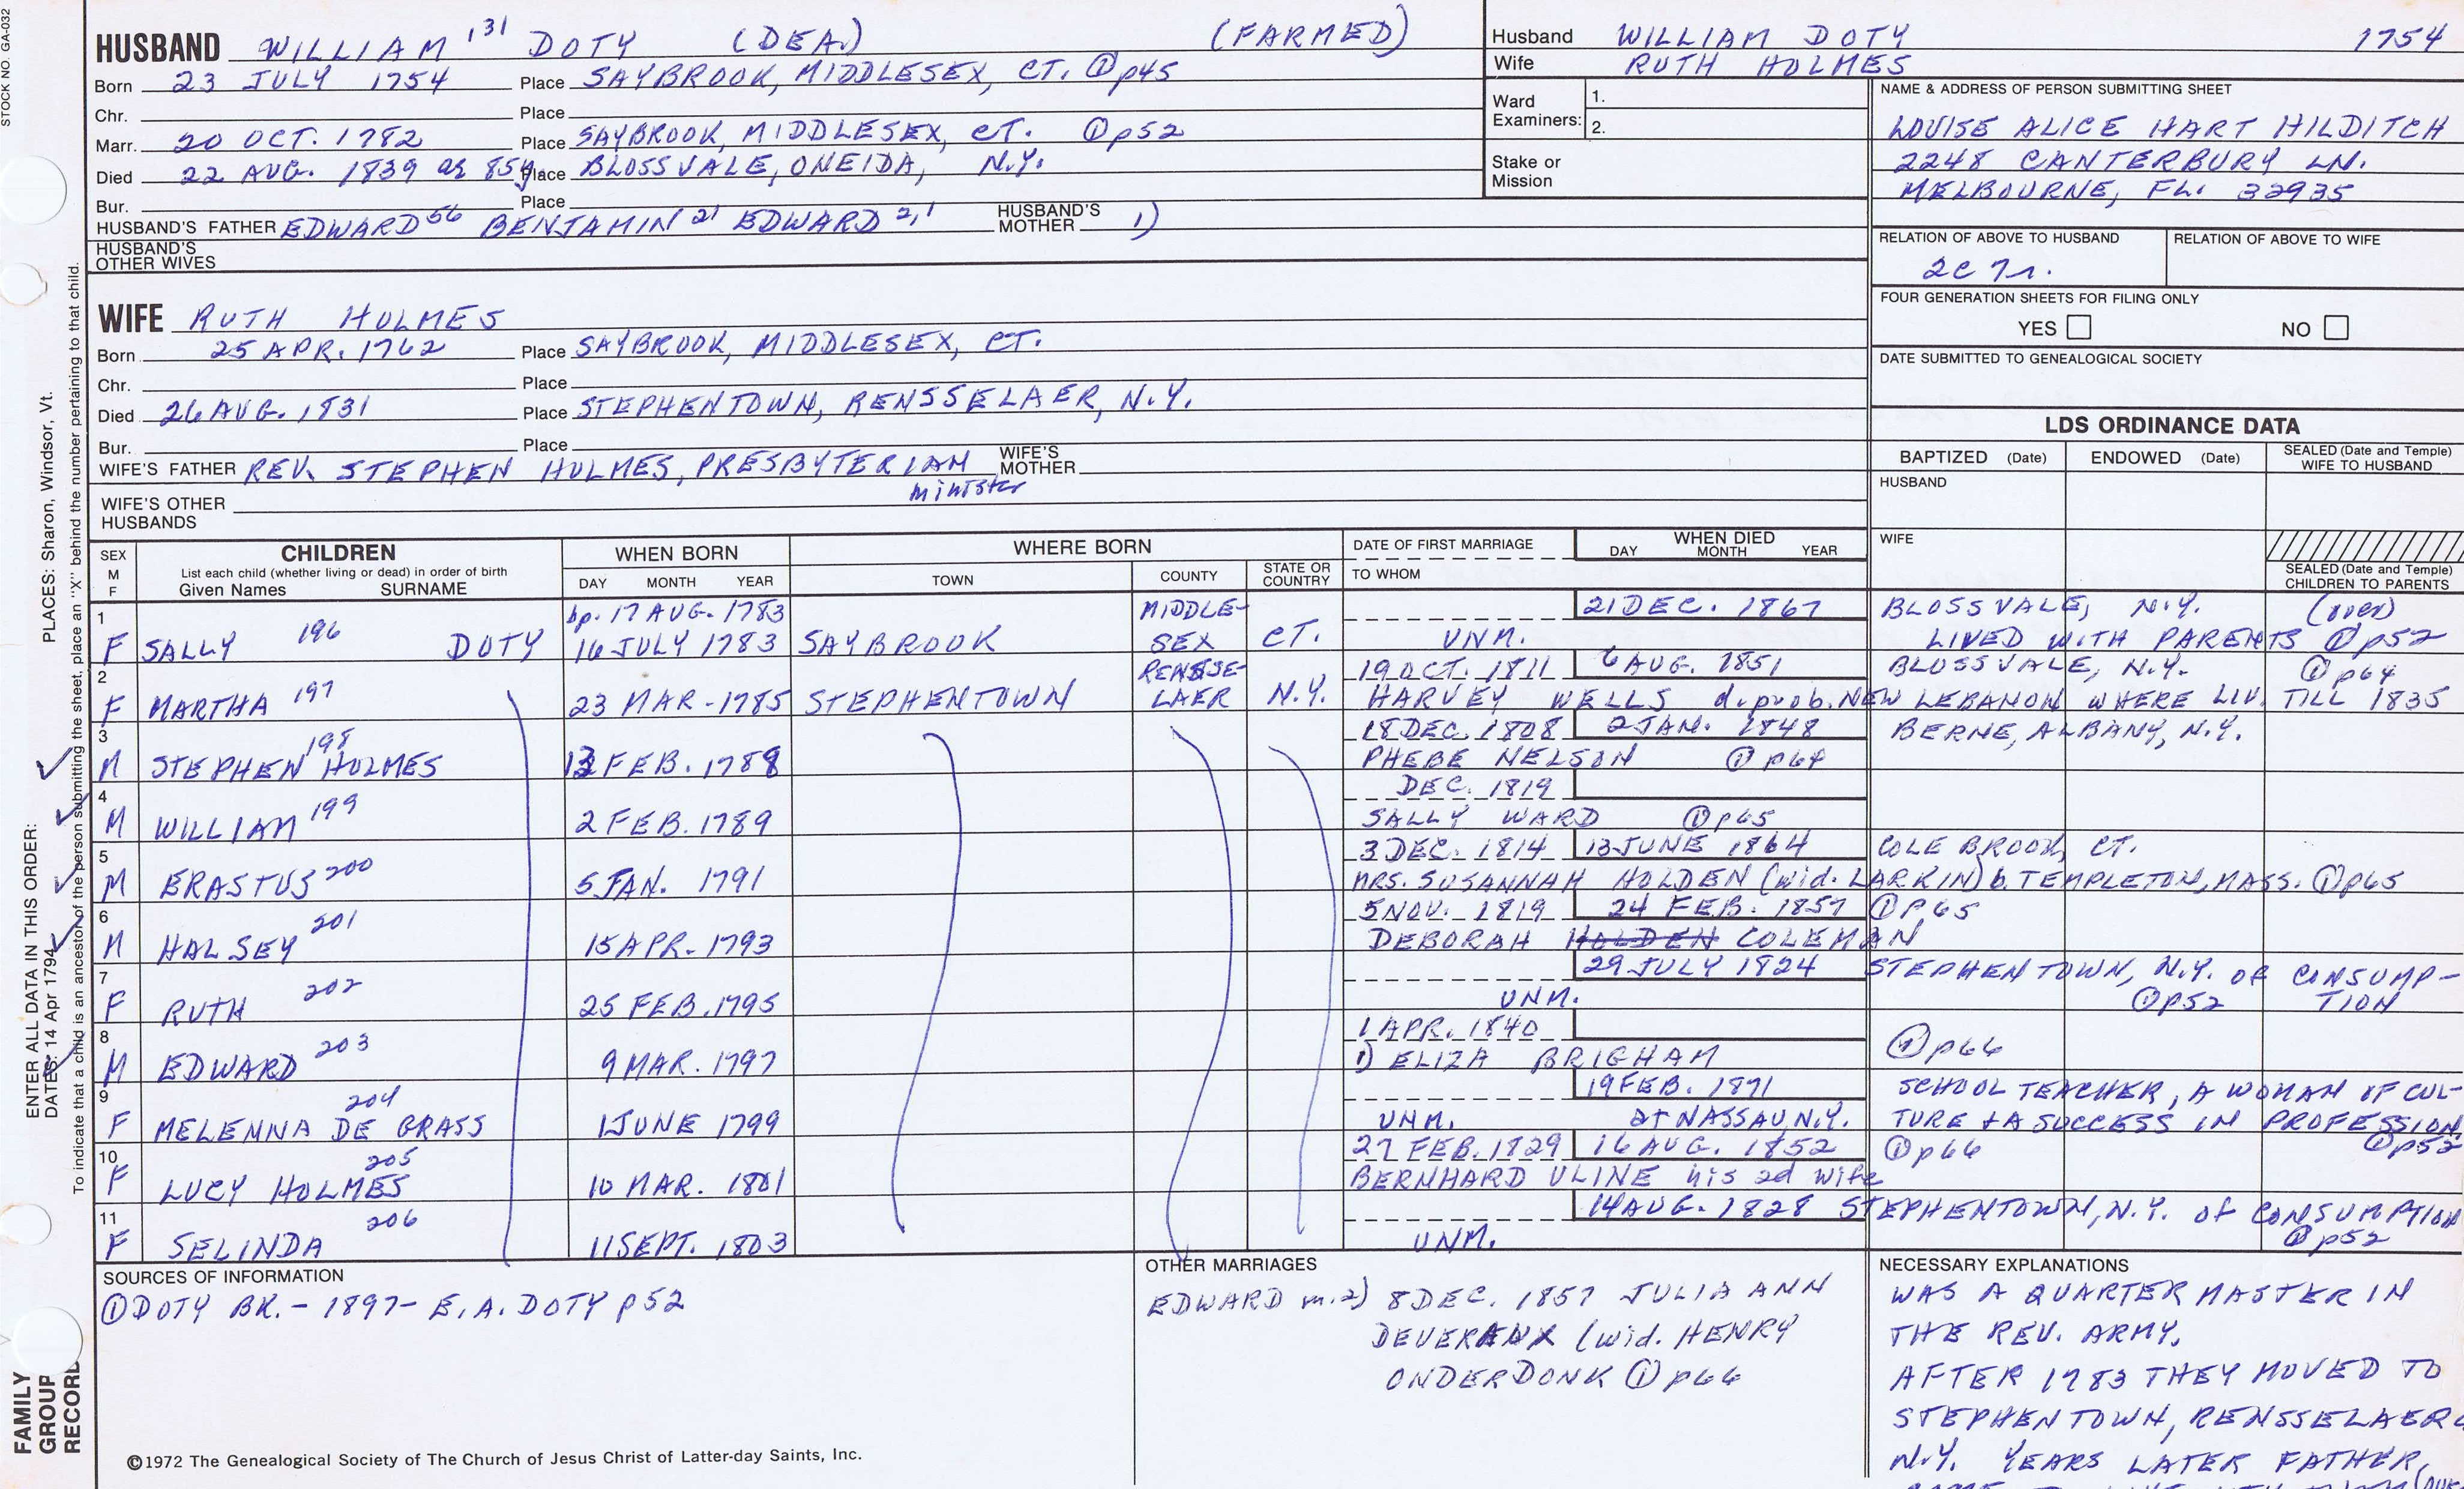 STOCK NO. GA-032
HUSBAND WILLIAM 131 DOTY (DEA.) (FARMED)
Born 23 JULY 1754 Place SAYBROOK, MIDDLESEX, CT. ① p45
Chr. Place
Marr. 20 OCT. 1782 Place SAYBROOK, MIDDLESEX, CT. ① p52
Died 22 AUG. 1839 ag 85y Place BLOSSVALE, ONEIDA, N.Y.
Bur. Place
HUSBAND'S FATHER EDWARD 56 BENJAMIN 21 EDWARD 2,1 HUSBAND'S MOTHER 1)
HUSBAND'S OTHER WIVES
WIFE RUTH HOLMES
Born 25 APR. 1762 Place SAYBROOK, MIDDLESEX, CT.
Chr. Place
Died 26 AUG. 1831 Place STEPHENTOWN, RENSSELAER, N.Y.
Bur. Place
WIFE'S FATHER REV. STEPHEN HOLMES, PRESBYTERIAN minister WIFE'S MOTHER
WIFE'S OTHER HUSBANDS
Husband WILLIAM DOTY 1754
Wife RUTH HOLMES
Ward Examiners: 1.
2.
Stake or Mission
NAME & ADDRESS OF PERSON SUBMITTING SHEET
LOUISE ALICE HART HILDITCH
2248 CANTERBURY LN.
MELBOURNE, FL. 32935
RELATION OF ABOVE TO HUSBAND RELATION OF ABOVE TO WIFE
2C 7r.
FOUR GENERATION SHEETS FOR FILING ONLY
YES NO
DATE SUBMITTED TO GENEALOGICAL SOCIETY
LDS ORDINANCE DATA
BAPTIZED (Date) ENDOWED (Date) SEALED (Date and Temple) WIFE TO HUSBAND
HUSBAND
WIFE
SEALED (Date and Temple) CHILDREN TO PARENTS
SEX M F CHILDREN WHEN BORN WHERE BORN DATE OF FIRST MARRIAGE WHEN DIED
List each child (whether living or dead) in order of birth
Given Names SURNAME DAY MONTH YEAR TOWN COUNTY STATE OR COUNTRY TO WHOM DAY MONTH YEAR
1 bp. 17 AUG. 1783 MIDDLE- 21 DEC. 1867 BLOSSVALE, N.Y. (over)
F SALLY 196 DOTY 16 JULY 1783 SAYBROOK SEX CT. UNM. LIVED WITH PARENTS ① p52
2 RENSSE- 19 OCT. 1811 6 AUG. 1851 BLOSSVALE, N.Y. ① p64
F MARTHA 197 23 MAR - 1785 STEPHENTOWN LAER N.Y. HARVEY WELLS d. prob. NEW LEBANON WHERE LIV. TILL 1835
3 18 DEC. 1808 2 JAN. 1848 BERNE, ALBANY, N.Y.
M STEPHEN HOLMES 198 FEB. PHEBE NELSON ① p64
4 DEC. 1819
M WILLIAM 199 2 FEB. 1789 SALLY WARD ① p65
5 3 DEC. 1814 13 JUNE 1864 COLE BROOK, CT.
M ERASTUS 200 5 JAN. 1791 MRS. SUSANNAH HOLDEN (wid. LARKIN) b. TEMPLETON, MASS. ① p65
6 5 NOV. 1819 24 FEB. 1857 ① P65
M HALSEY 201 15 APR. 1793 DEBORAH HOLDEN COLEMAN
7 29 JULY 1824 STEPHENTOWN, N.Y. OF CONSUMP-
F RUTH 202 25 FEB. 1795 UNM. ① p52 TION
8 1 APR. 1840 ① p66
M EDWARD 203 9 MAR. 1797 1) ELIZA BRIGHAM
9 19 FEB. 1871 SCHOOL TEACHER, A WOMAN OF CUL-
F MELENNA DE GRASS 204 1 JUNE 1799 UNM. at NASSAU, N.Y. TURE & A SUCCESS IN PROFESSION ① p52
10 27 FEB. 1829 16 AUG. 1852 ① p66
F LUCY HOLMES 205 10 MAR. 1801 BERNHARD ULINE his 2d wife
11 14 AUG. 1828 STEPHENTOWN, N.Y. of CONSUMPTION
F SELINDA 206 11 SEPT. 1803 UNM. ① p52
SOURCES OF INFORMATION
① DOTY BK. - 1897 - E. A. DOTY p52
OTHER MARRIAGES
EDWARD m. 2) 8 DEC. 1857 JULIA ANN
DEVEREAUX (wid. HENRY
ONDERDONK ① p66
NECESSARY EXPLANATIONS
WAS A QUARTER MASTER IN
THE REV. ARMY.
AFTER 1783 THEY MOVED TO
STEPHENTOWN, RENSSELAER
N.Y. YEARS LATER FATHER
©1972 The Genealogical Society of The Church of Jesus Christ of Latter-day Saints, Inc.
FAMILY GROUP RECORD
ENTER ALL DATA IN THIS ORDER:
DATES: 14 Apr 1794
PLACES: Sharon, Windsor, Vt.
To indicate that a child is an ancestor of the person submitting the sheet, place an "X" behind the number pertaining to that child.